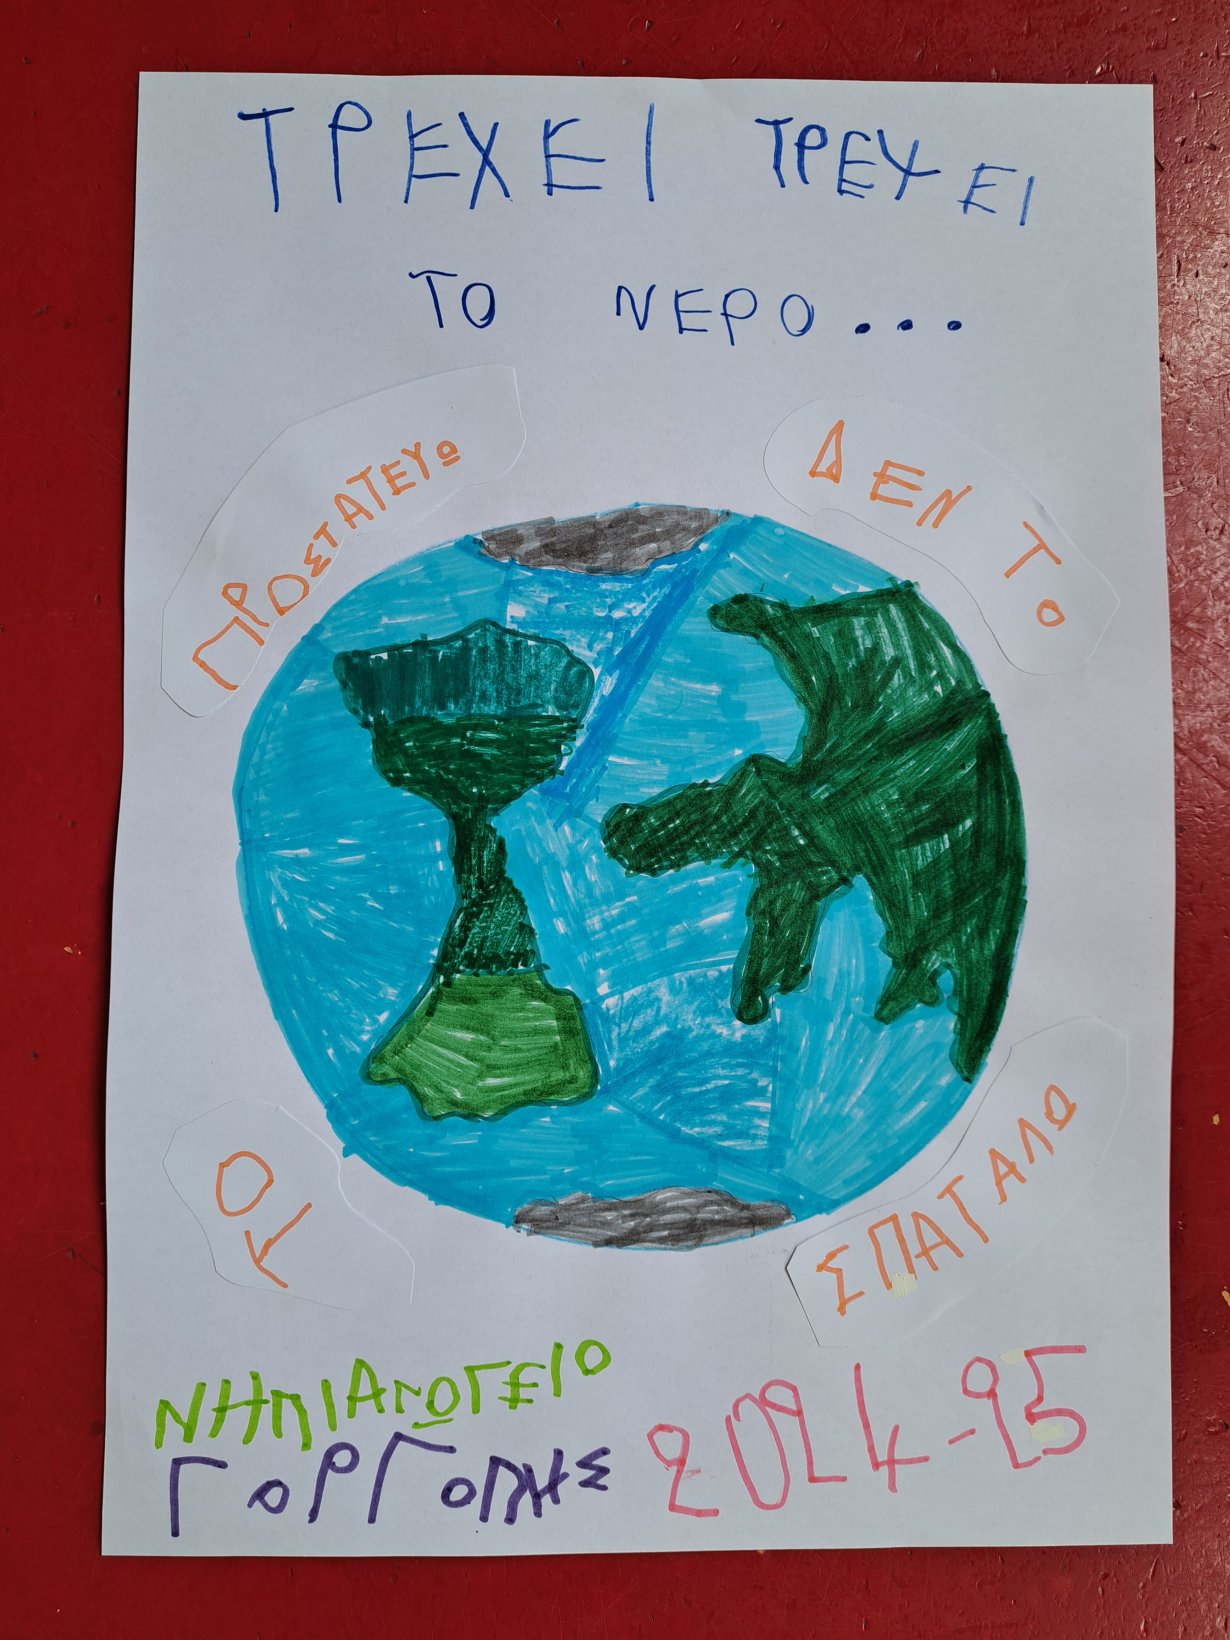 ΤΡΕΧΕΙ ΤΡΕΧΕΙ
ΤΟ ΝΕΡΟ...
ΠΡΟΣΤΑΤΕΥΩ
ΤΟ
ΔΕΝ ΤΟ
ΣΠΑΤΑΛΩ
ΝΗΠΙΑΓΩΓΕΙΟ
ΓΟΡΓΟΠΗΣ
2024-25